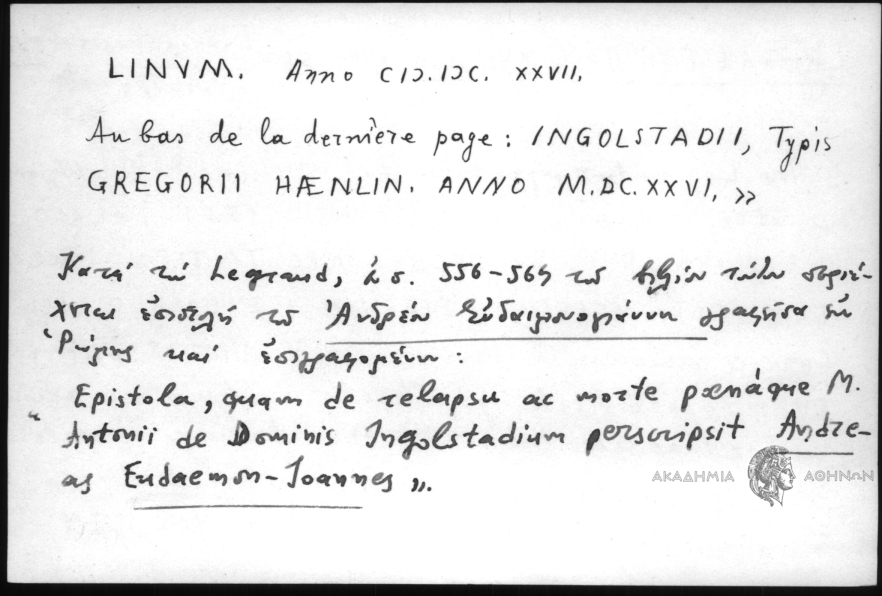 LINVM. Anno CIↃ.IↃC. XXVII.
Au bas de la dernière page: INGOLSTADII, Typis
GREGORII HÆNLIN. ANNO M.DC.XXVI. »
Κατὰ τὸν Legrand, ἐν σ. 556-569 τοῦ βιβλίου τούτου περιέ-
χεται ἐπιστολὴ τοῦ Ἀνδρέου Εὐδαιμονογιάννη γραφεῖσα ἐκ
Ῥώμης καὶ ἐπιγραφομένη:
" Epistola, quam de relapsu ac morte pœnáque M.
Antonii de Dominis Ingolstadium perscripsit Andre-
as Eudaemon-Joannes ".
ΑΚΑΔΗΜΙΑ ΑΘΗΝΩΝ